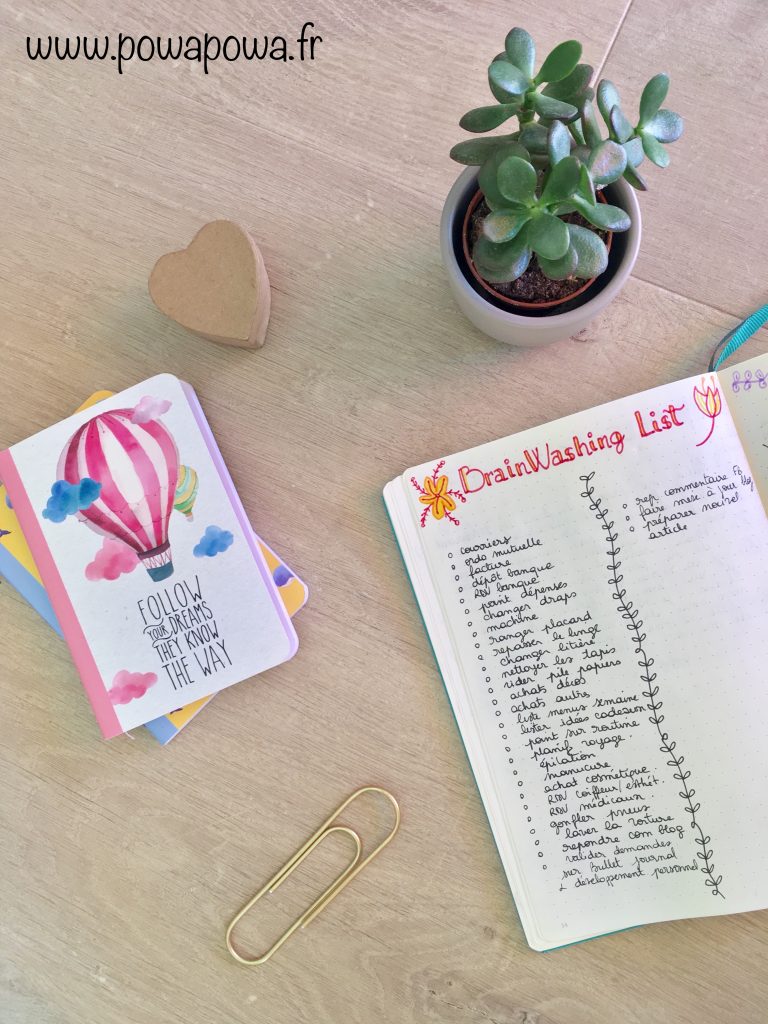 www.powapowa.fr
FOLLOW
YOUR DREAMS
THEY KNOW
THE WAY
BrainWashing List
courriers
ordo mutuelle
facture
dépôt banque
RDV banque
point dépenses
changer draps
machine
ranger placard
repasser le linge
changer litière
nettoyer les tapis
vider pile papiers
achats décos
achats autre
liste menus semaine
lister idées cadeaux
point sur routine
planif voyage.
épilation
manucure
achat cosmétique.
RDV coiffeur/esthét.
RDV médicaux.
gonfler pneus
laver la voiture
repondre com blog
valider demandes
sur Bullet Journal
& développement personnel
rep commentaire Fb
faire mise à jour blog
préparer nouvel
article